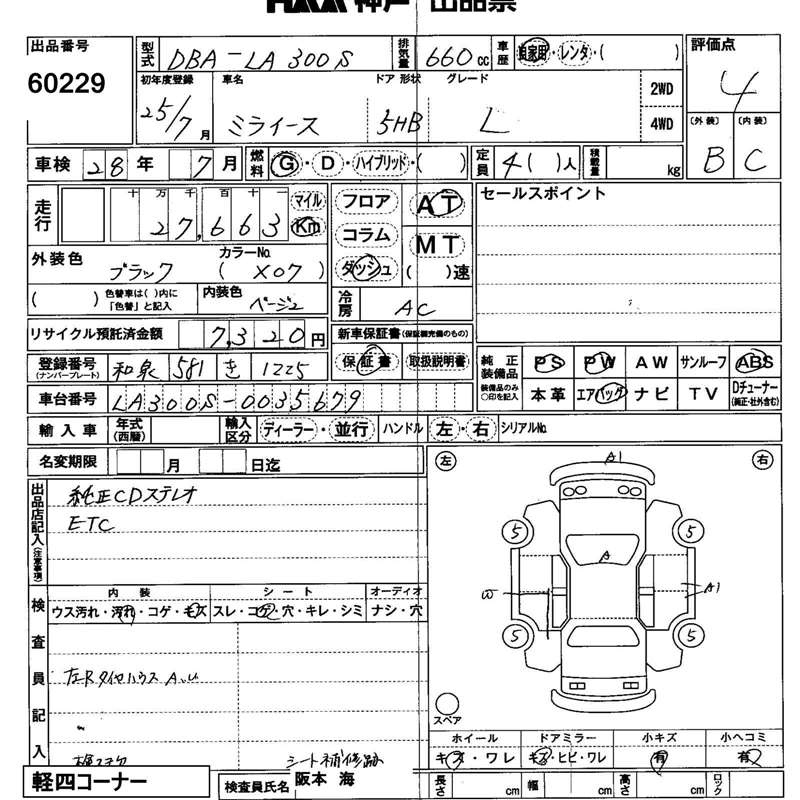 HAA神戸 出品票
出品番号 60229
型式 DBA-LA300S 排気量 660cc 車歴 自家用・レンタ・( )
評価点 4
初年度登録 25/7月 車名 ミライース ドア 形状 5HB グレード L 2WD 4WD
(外装) B (内装) C
車検 28年 7月 燃料 G・D・ハイブリッド・( ) 定員 4( )人 積載量 kg
走行 十万千百十一 27,663 マイル Km
フロア コラム ダッシュ
AT MT ( )速
セールスポイント
外装色 ブラック カラーNo. ( X07 )
( ) 色替車は( )内に「色替」と記入 内装色 ベージュ
冷房 AC
リサイクル預託済金額 7,320円
新車保証書(保証欄完備のもの) 保証書 取扱説明書
登録番号 (ナンバープレート) 和泉 581 き 1225
車台番号 LA300S-0035679
純正装備品 装備品のみ○印を記入
PS PW AW サンルーフ ABS
本革 エアバック ナビ TV Dチューナー (純正・社外含む)
輸入車 年式(西暦) 輸入区分 ディーラー・並行 ハンドル 左・右 シリアルNo.
名変期限 月 日迄
出品店記入(注意事項)
純正CDステレオ
ETC
左 右
A1
5 5
A
W A1
5 5
スペア
検査員記入
内装 シート オーディオ
ウス汚れ・汚れ・コゲ・キズ スレ・コゲ・穴・キレ・シミ ナシ・穴
左Rタイヤハウス
シート補修跡
ホイール ドアミラー 小キズ 小ヘコミ
キズ・ワレ キズ・ヒビ・ワレ 有 有
軽四コーナー
検査員氏名 阪本 海
長さ cm 幅 cm 高さ cm ロック